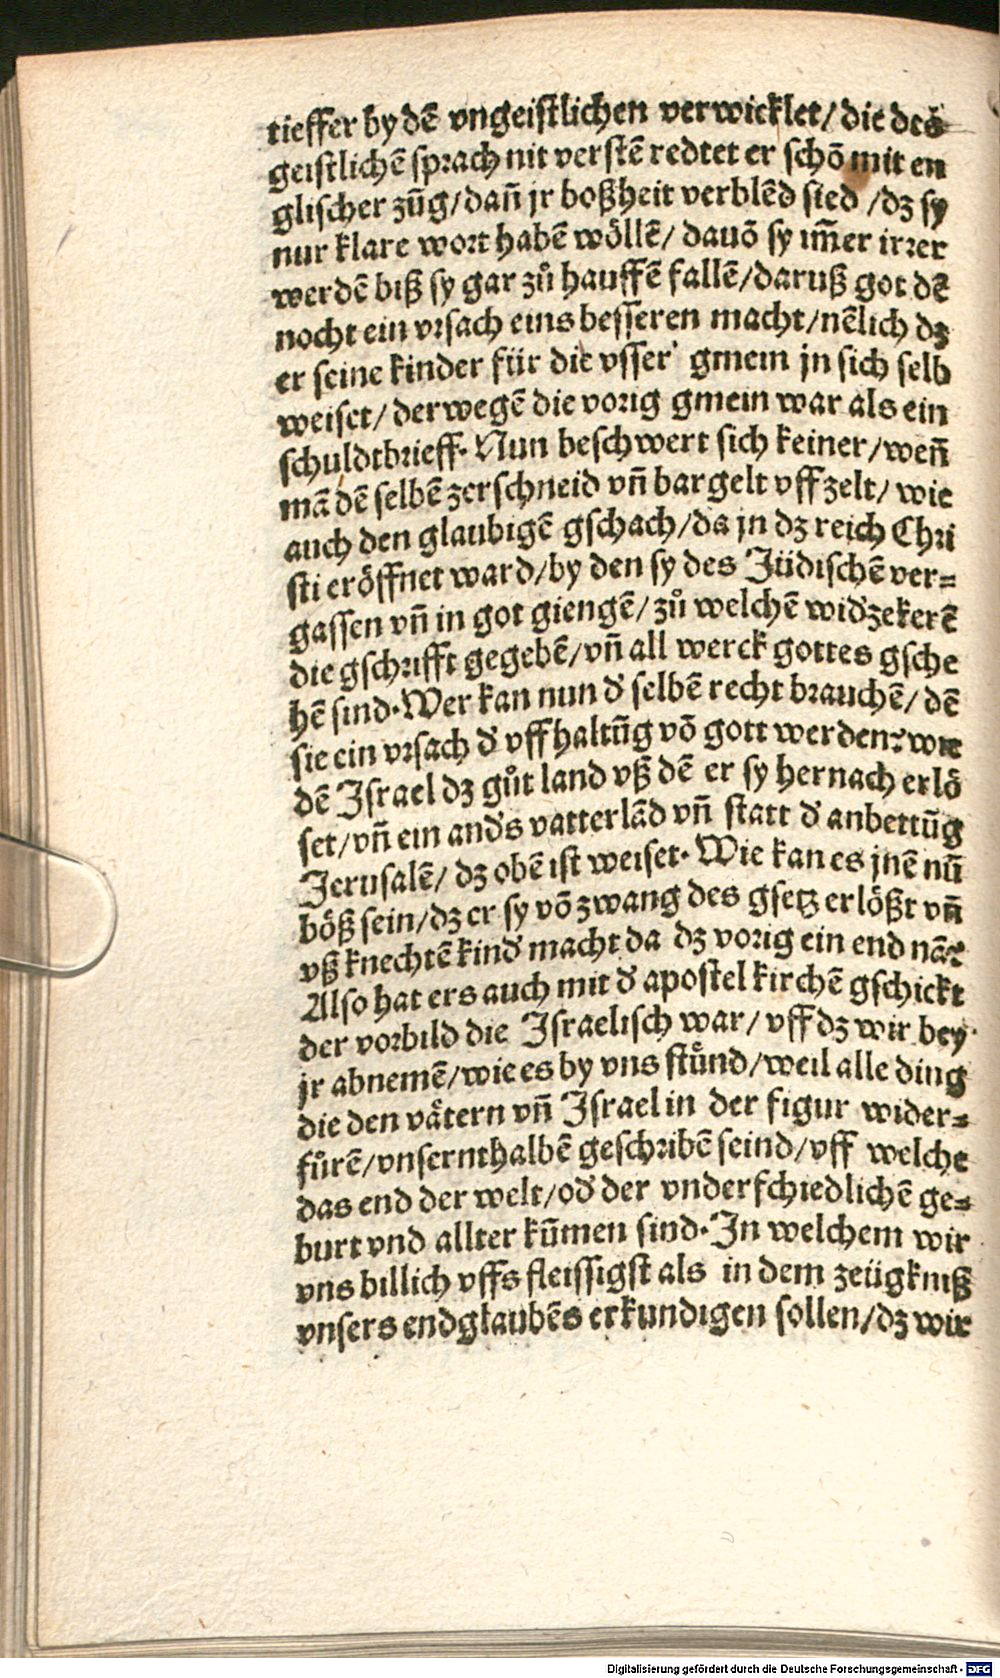 tieffer by dē vngeistlichen verwicklet/ die des
geistlichē sprach nit verstē redtet er schō mit en
glischer zūg/dañ jr boßheit verblēd sied /dz sy
nur klare wort habē wöllē/ dauō sy im̄er irrer
werdē biß sy gar zů hauffē fallē/daruß got dē
nocht ein vrsach eins besseren macht/nēlich dz
er seine kinder für die vsser' gmein jn sich selb
weiset/ der wegē die vorig gmein war als ein
schuldtbrieff. Nun beschwert sich keiner/weñ
mā dē selbē zerschneid vñ bargelt vff zelt/ wie
auch den glaubigē gschach/da jn dz reich Chri
sti eröffnet ward/by den sy des Jüdischē ver=
gassen vñ in got giengē/ zů welchē wid'zekerē
die gschrifft gegebē/vñ all werck gottes gsche
hē sind. Wer kan nun d' selbē recht brauchē/ dē
sie ein vrsach d' vffhaltūg vō gott werden? wie
dē Israel dz gůt land vß dē er sy hernach erlö
set/vñ ein and's vatterlād vñ statt d' anbettūg
Jerusalē/ dz obē ist weiset. Wie kan es jnē nū
böß sein/dz er sy vō zwang des gsetz erlößt vñ
vß knechtē kind' macht da dz vorig ein end nā?
Also hat ers auch mit d' apostel kirchē gschickt
der vorbild die Israelisch war/ vff dz wir bey
jr abnemē/wie es by vns stůnd/weil alle ding
die den vätern vñ Israel in der figur wider=
fůrē/vnsernthalbē geschribē seind/vff welche
das end der welt/od' der vnderschiedlichē ge=
burt vnd allter kūmen sind. In welchem wir
vns billich vffs fleissigst als in dem zeügkniß
vnsers endglaubēs erkundigen sollen/dz wir
Digitalisierung gefördert durch die Deutsche Forschungsgemeinschaft - DFG